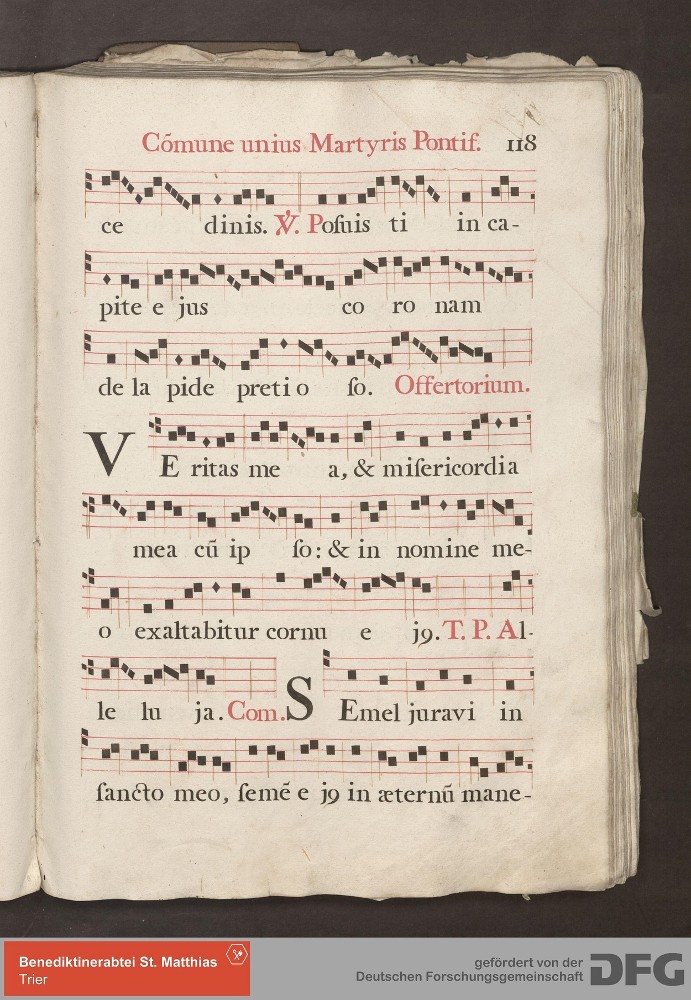 Cõmune unius Martyris Pontif. 118
ce dinis. ℣. Poſuis ti in ca-
pite e jus co ro nam
de la pide preti o ſo. Offertorium.
VE ritas me a, & miſericordia
mea cũ ip ſo: & in nomine me-
o exaltabitur cornu e jꝯ. T. P. Al-
le lu ja. Com. SEmel juravi in
ſancto meo, ſemẽ e jꝯ in æternũ mane-
Benediktinerabtei St. Matthias
Trier
gefördert von der
Deutschen Forschungsgemeinschaft DFG